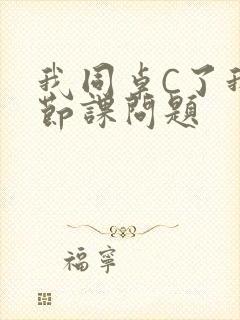 我同桌C了我
節課問題
福寧